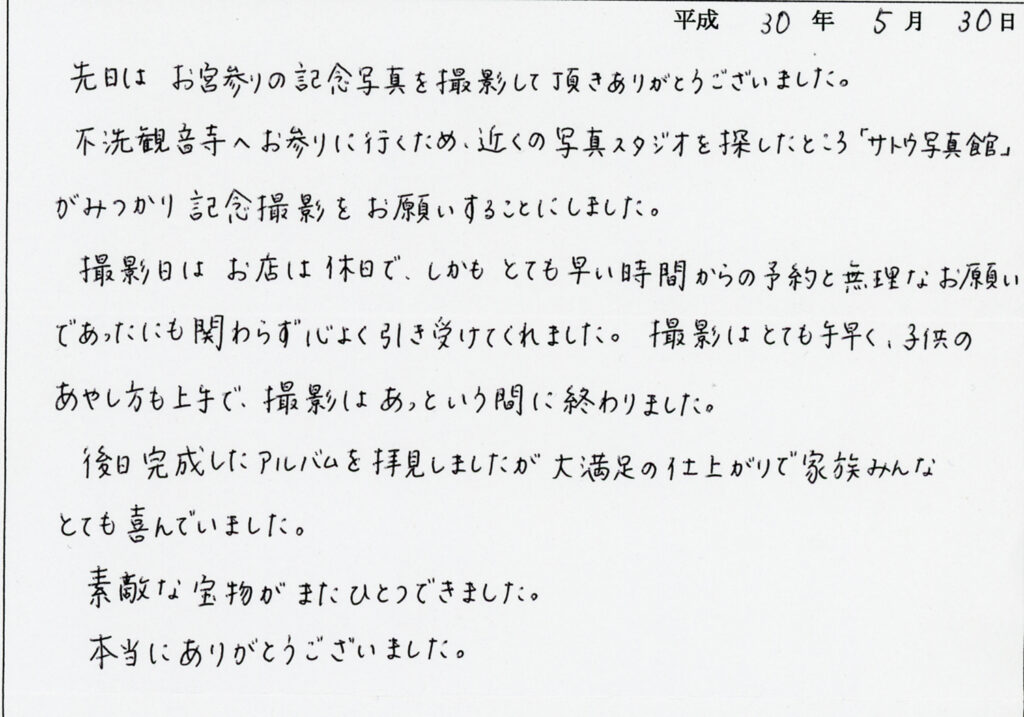 平成 30 年 5 月 30 日
先日は お宮参りの記念写真を撮影して頂きありがとうございました。
不洗観音寺へお参りに行くため、近くの写真スタジオを探したところ「サトウ写真館」
がみつかり記念撮影をお願いすることにしました。
撮影日は お店は休日で、しかもとても早い時間からの予約と無理なお願い
であったにも関わらず心よく引き受けてくれました。 撮影はとても手早く、子供の
あやし方も上手で、撮影はあっという間に終わりました。
後日完成したアルバムを拝見しましたが大満足の仕上がりで家族みんな
とても喜んでいました。
素敵な宝物がまたひとつできました。
本当にありがとうございました。